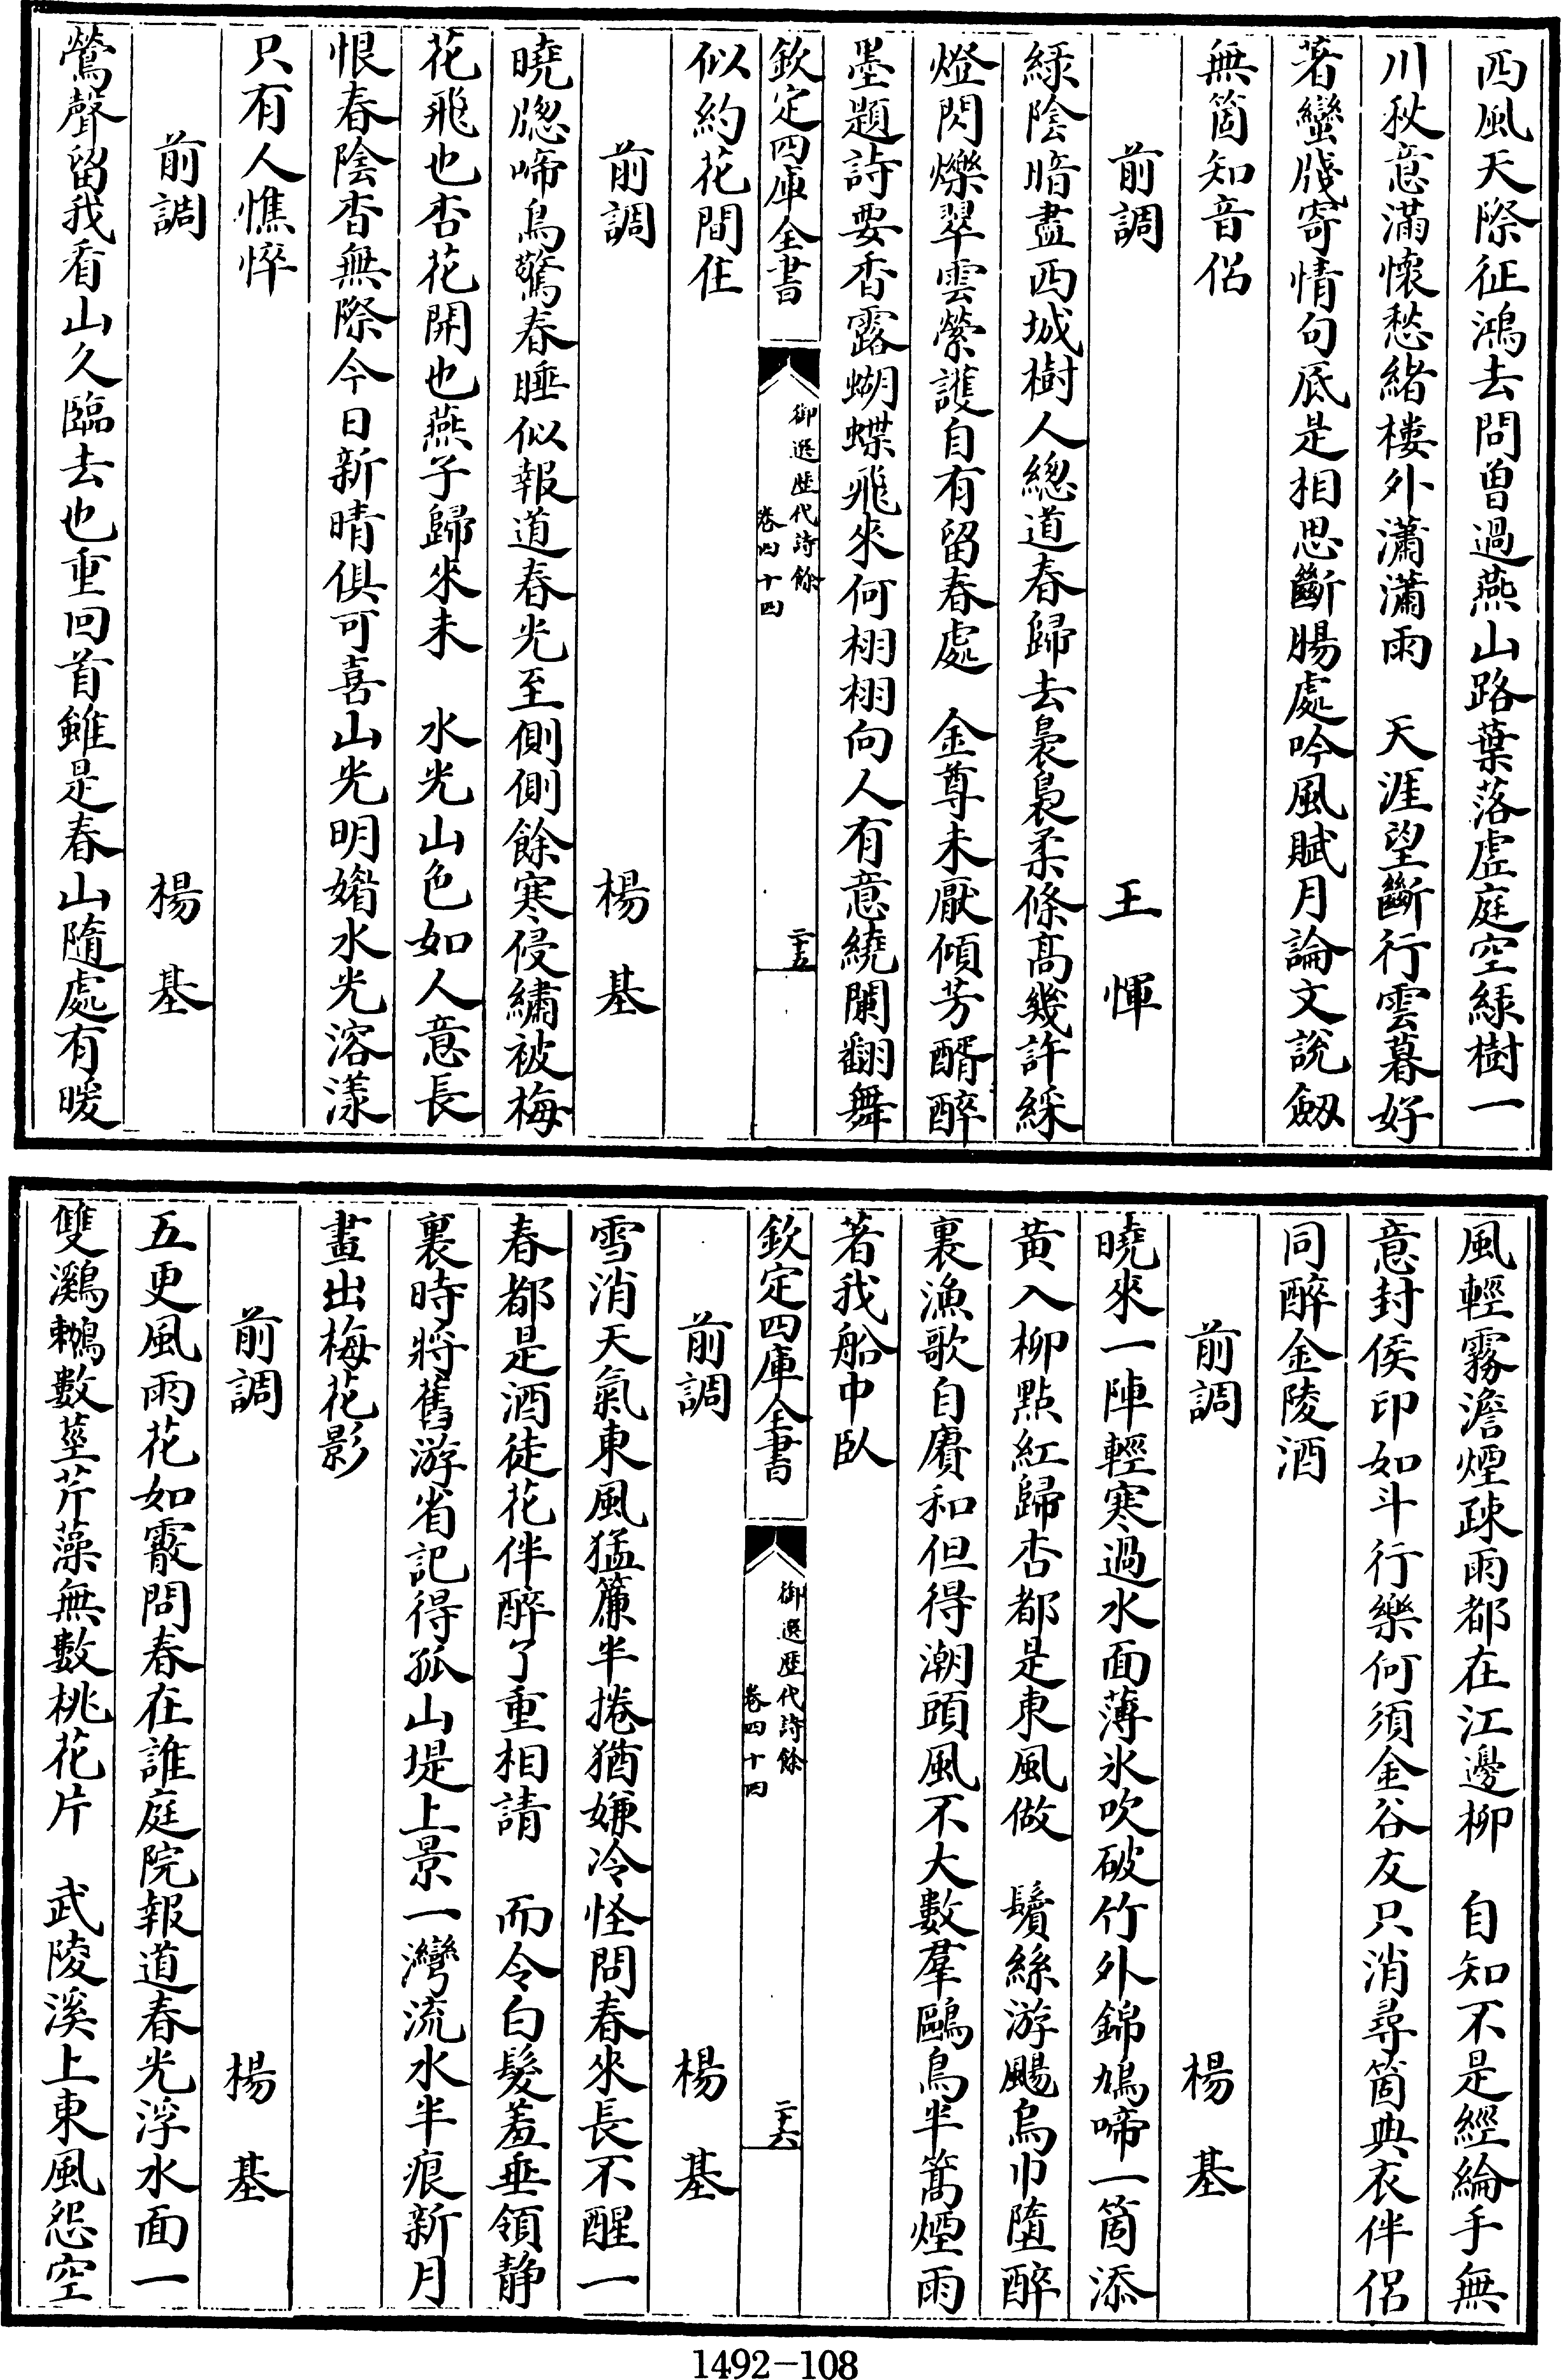 西風天際征鴻去問曽過燕山路葉落虛庭空綠樹一
川秋意滿懷愁緒樓外瀟瀟雨　天涯望斷行雲暮好
著蠻牋寄情句底是相思斷腸處吟風賦月論文說劔
無箇知音侶
前調　王惲
綠陰暗盡西城樹人總道春歸去裊裊柔條髙幾許綵
燈閃爍翠雲縈護自有留春處　金尊未厭傾芳醑醉
墨題詩要香露蝴蝶飛來何栩栩向人有意繞闌翻舞
似約花間住
欽定四庫全書
御選歷代詩餘
卷四十四
二十五
前調　楊基
曉牎啼鳥驚春睡似報道春光至側側餘寒侵繡被梅
花飛也杏花開也燕子歸來未　水光山色如人意長
恨春陰杳無際今日新晴俱可喜山光明媚水光溶漾
只有人憔悴
前調　楊基
鶯聲留我看山久臨去也重回首雖是春山隨處有暖
風輕霧澹煙疎雨都在江邊柳　自知不是經綸手無
意封侯印如斗行樂何須金谷友只消尋箇典衣伴侶
同醉金陵酒
前調　楊基
曉來一陣輕寒過水面薄氷吹破竹外錦鳩啼一箇添
黄入柳點紅歸杏都是東風做　鬢絲游颺烏巾墮醉
裏漁歌自賡和但得潮頭風不大數羣鷗鳥半篙煙雨
著我船中臥
欽定四庫全書
御選歷代詩餘
卷四十四
二十六
前調　楊基
雪消天氣東風猛簾半捲猶嫌冷怪問春來長不醒一
春都是酒徒花伴醉了重相請　而今白髮羞垂領静
裏時將舊游省記得孤山堤上景一灣流水半痕新月
畫出梅花影
前調　楊基
五更風雨花如霰問春在誰庭院報道春光浮水面一
雙鸂鶒數莖芹藻無數桃花片　武陵溪上東風怨空
1492-108